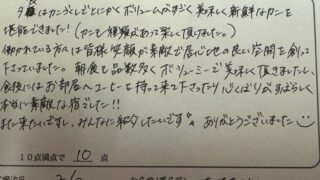 夕食はカニづくしでとにかくボリュームがすごく美味しく新鮮なカニを
堪能できました!(カニも種類があって楽しく頂けました。)
働かれている方々は皆様笑顔が素敵で居心地の良い空間を創って
下さっていました。朝食も品数多くボリューミーで美味しく頂きましたし、
食後にはお部屋へコーヒーを持って来て下さったり心くばりがすばらしく
本当に素敵な宿でした!!
また来たいですし、みんなに紹介したいです ありがとうございました
10点満点で 10 点